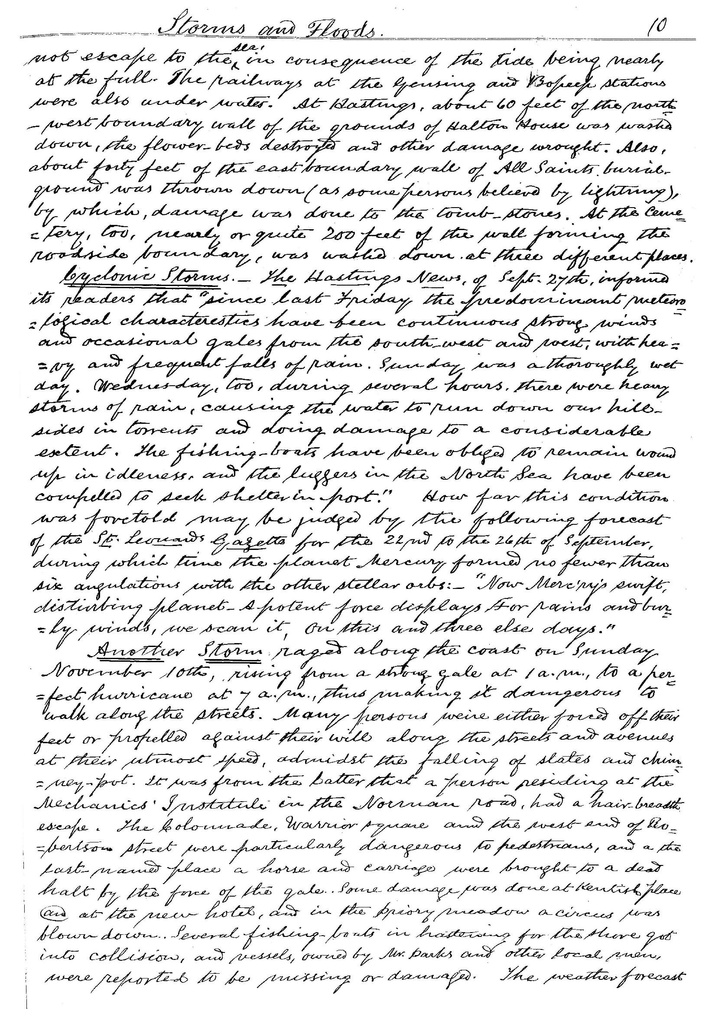 Storms and Floods. 10
not escape to the sea, in consequence of the tide being nearly
at the full. The railways at the Gensing and Bopeep stations
were also under water. At Hastings, about 60 feet of the north
-west boundary wall of the grounds of Halton House was washed
down, the flower-beds destroyed and other damage wrought. Also,
about forty feet of the east boundary wall of All Saints burial-
ground was thrown down (as some persons believed by lightning),
by which, damage was done to the tomb-stones. At the Ceme-
=tery, too, nearly or quite 200 feet of the wall forming the
roadside boundary, was washed down at three different places.
Cyclonic Storms. - The Hastings News, of Sept. 27th, informed
its readers that "since last Friday the predominant meteoro
=logical characterestics have been continuous strong winds
and occasional gales from the south-west and west, with hea=
=vy and frequent falls of rain. Sunday was a thoroughly wet
day. Wednesday, too, during several hours, there were heavy
storms of rain, causing the water to run down our hill-
sides in torrents and doing damage to a considerable
extent. The fishing-boats have been obliged to remain wound
up in idleness, and the luggers in the North Sea have been
compelled to seek shelter in port." How far this condition
was foretold may be judged by the following forecast
of the St. Leonards Gazette for the 22nd to the 26th of September,
during which time the planet Mercury formed no fewer than
six angulations with the other stellar orbs:- "Now Merc'ry's swift,
disturbing planet- A potent force displays For rains and bur=
=ly winds, we scan it, On this and three else days."
Another Storm raged along the coast on Sunday
November 10th, rising from a strong gale at 1 a.m., to a per=
=fect hurricane at 7 a.m., thus making it dangerous to
walk along the streets. Many persons weire either forced off their
feet or propelled against their will along the streets and avenues
at their utmost speed, admidst the falling of slates and chim=
=ney-pot. It was from the latter that a person residing at the
Mechanics' Institute in the Norman road, had a hair-breadth
escape. The Colonnade, Warrior square and the west end of Ro=
=bertson street were particularly dangerous to pedestrians, and a the
last-named place a horse and carriage were brought to a dead
halt by the force of the gale. Some damage was done at Kentish place
and at the new hotel, and in the priory meadow a circus was
blown down. Several fishing-boats in hastening for the shore got
into collision, and vessels, owned by Mr. Parks and other local men,
were reported to be missing or damaged. The weather forecast